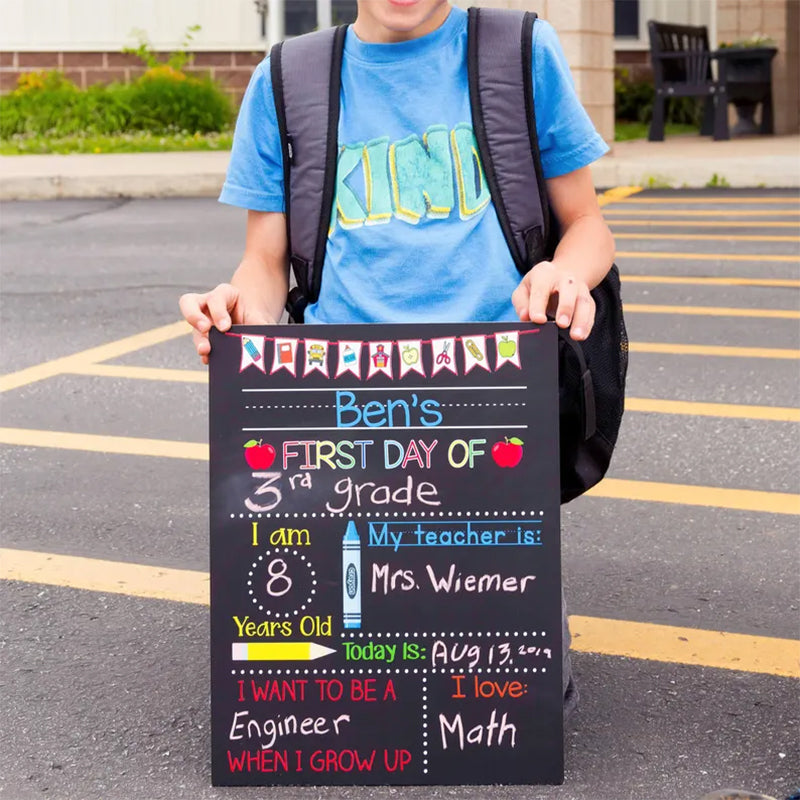 KIND
Ben's
FIRST DAY OF
3rd grade
I am
8
Years Old
My teacher is:
Mrs. Wiemer
Today is: Aug 13, 2019
I WANT TO BE A
Engineer
WHEN I GROW UP
I love:
Math